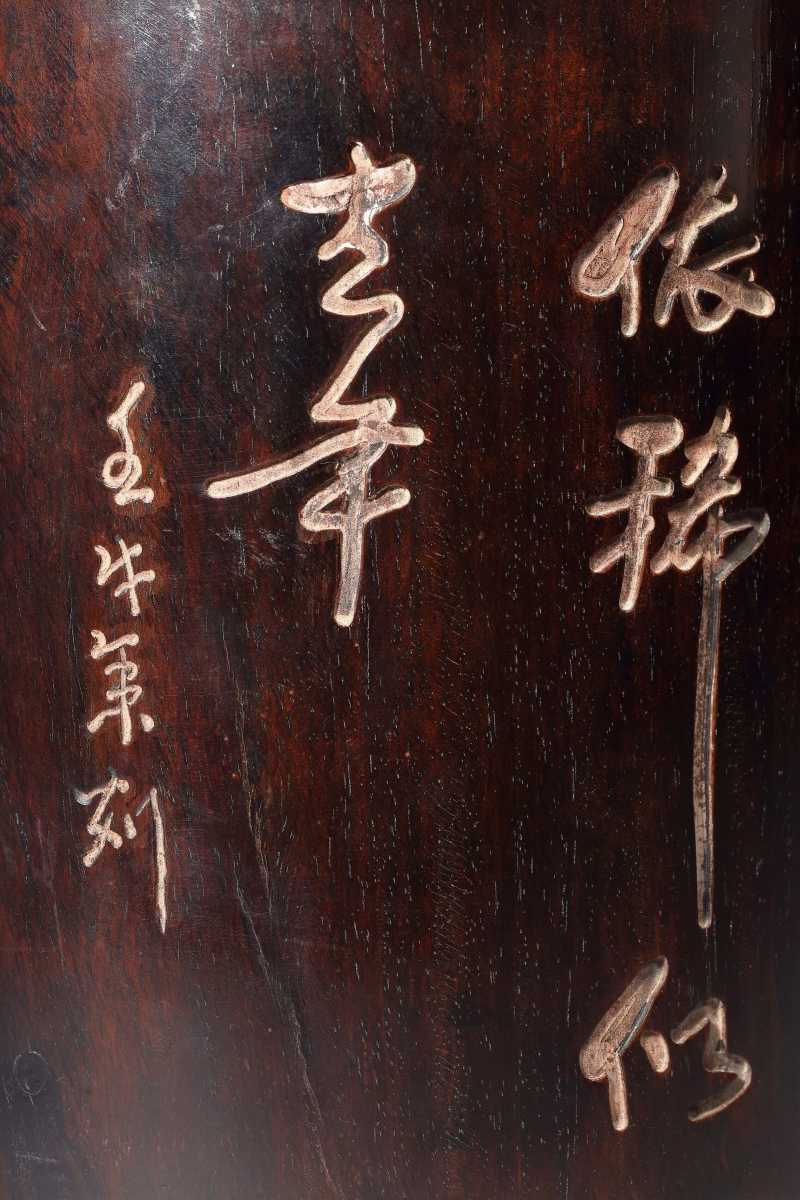 依稀似
去年
壬午刻